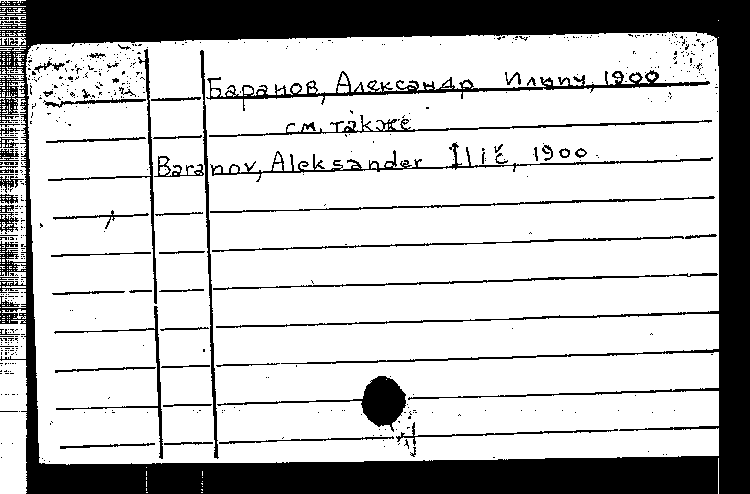 Баранов, Александр Ильич, 1900
см. также
Baranov, Aleksander Ilič, 1900.